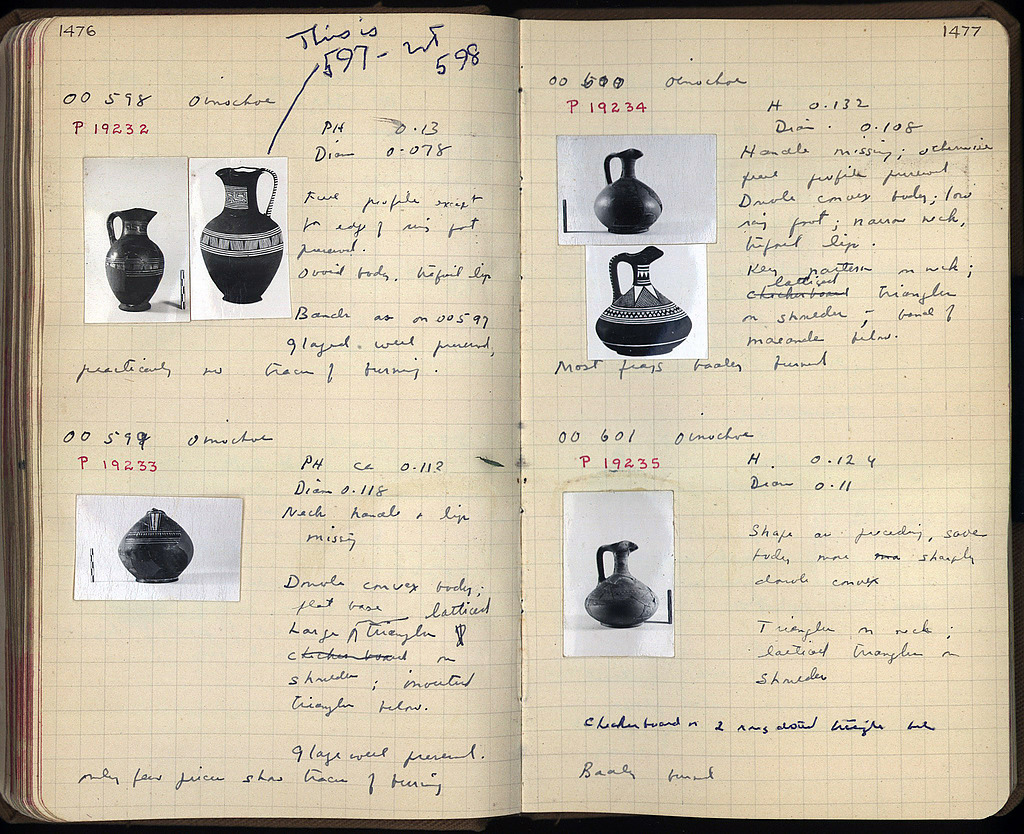 1476
This is
597 - not
598
OO 598 Oinochoe
P 19232
PH 0.13
Diam 0.078
Full profile except
for edge of ring foot
preserved.
Ovoid body, trefoil lip
Bands as on OO597
Glazed well preserved,
practically no traces of burning.
OO 599 Oinochoe
P 19233
PH ca 0.112
Diam 0.118
Neck handle + lip
missing
Double convex body;
flat base latticed
Large triangles
checkerboard on
shoulder; inverted
triangles below.
Glaze well preserved.
only few pieces show traces of burning
1477
OO 600 Oinochoe
P 19234
H 0.132
Diam. 0.108
Handle missing; otherwise
full profile preserved
Double convex body; low
ring foot; narrow neck,
trefoil lip.
Key pattern on neck;
latticed
checkerboard triangles
on shoulder; band of
maeander below.
Most frags badly burned
OO 601 Oinochoe
P 19235
H. 0.124
Diam 0.11
Shape as preceding, save
body more sharply
double convex
Triangles on neck;
latticed triangles on
shoulder
Checkerboard on 2 rows dotted triangles
Badly burned